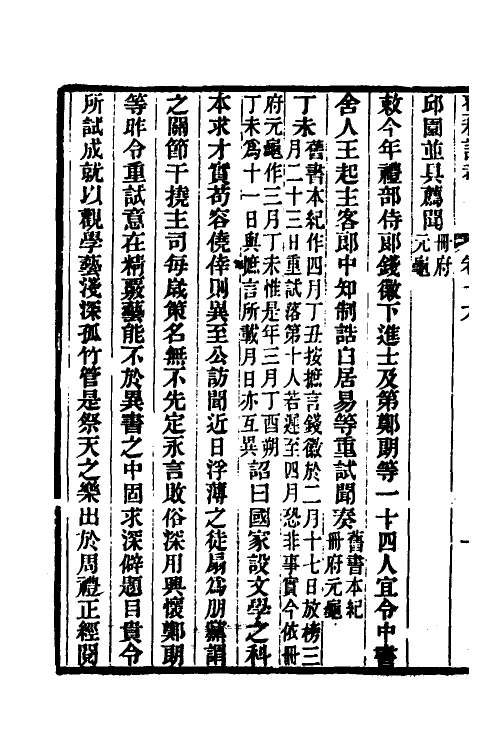 邱園並具薦聞冊府元龜
敕今年禮部侍郎錢徽下進士及第鄭朗等一十四人宜令中書
舍人王起主客郎中知制誥白居易等重試聞奏舊書本紀冊府元龜
丁未舊書本紀作四月丁丑按摭言錢徽於二月十七日放榜三月二十三日重試落第十人若遲至四月恐非事實今依冊
府元龜作三月丁未惟是年三月丁酉朔丁未爲十一日與摭言所載月日亦互異詔曰國家設文學之科
本求才實苟容僥倖則異至公訪聞近日浮薄之徒扇爲朋黨謂
之關節干撓主司每歲策名無不先定永言敗俗深用興懷鄭朗
等昨令重試意在精覈藝能不於異書之中固求深僻題目貴令
所試成就以觀學藝淺深孤竹管是祭天之樂出於周禮正經閱